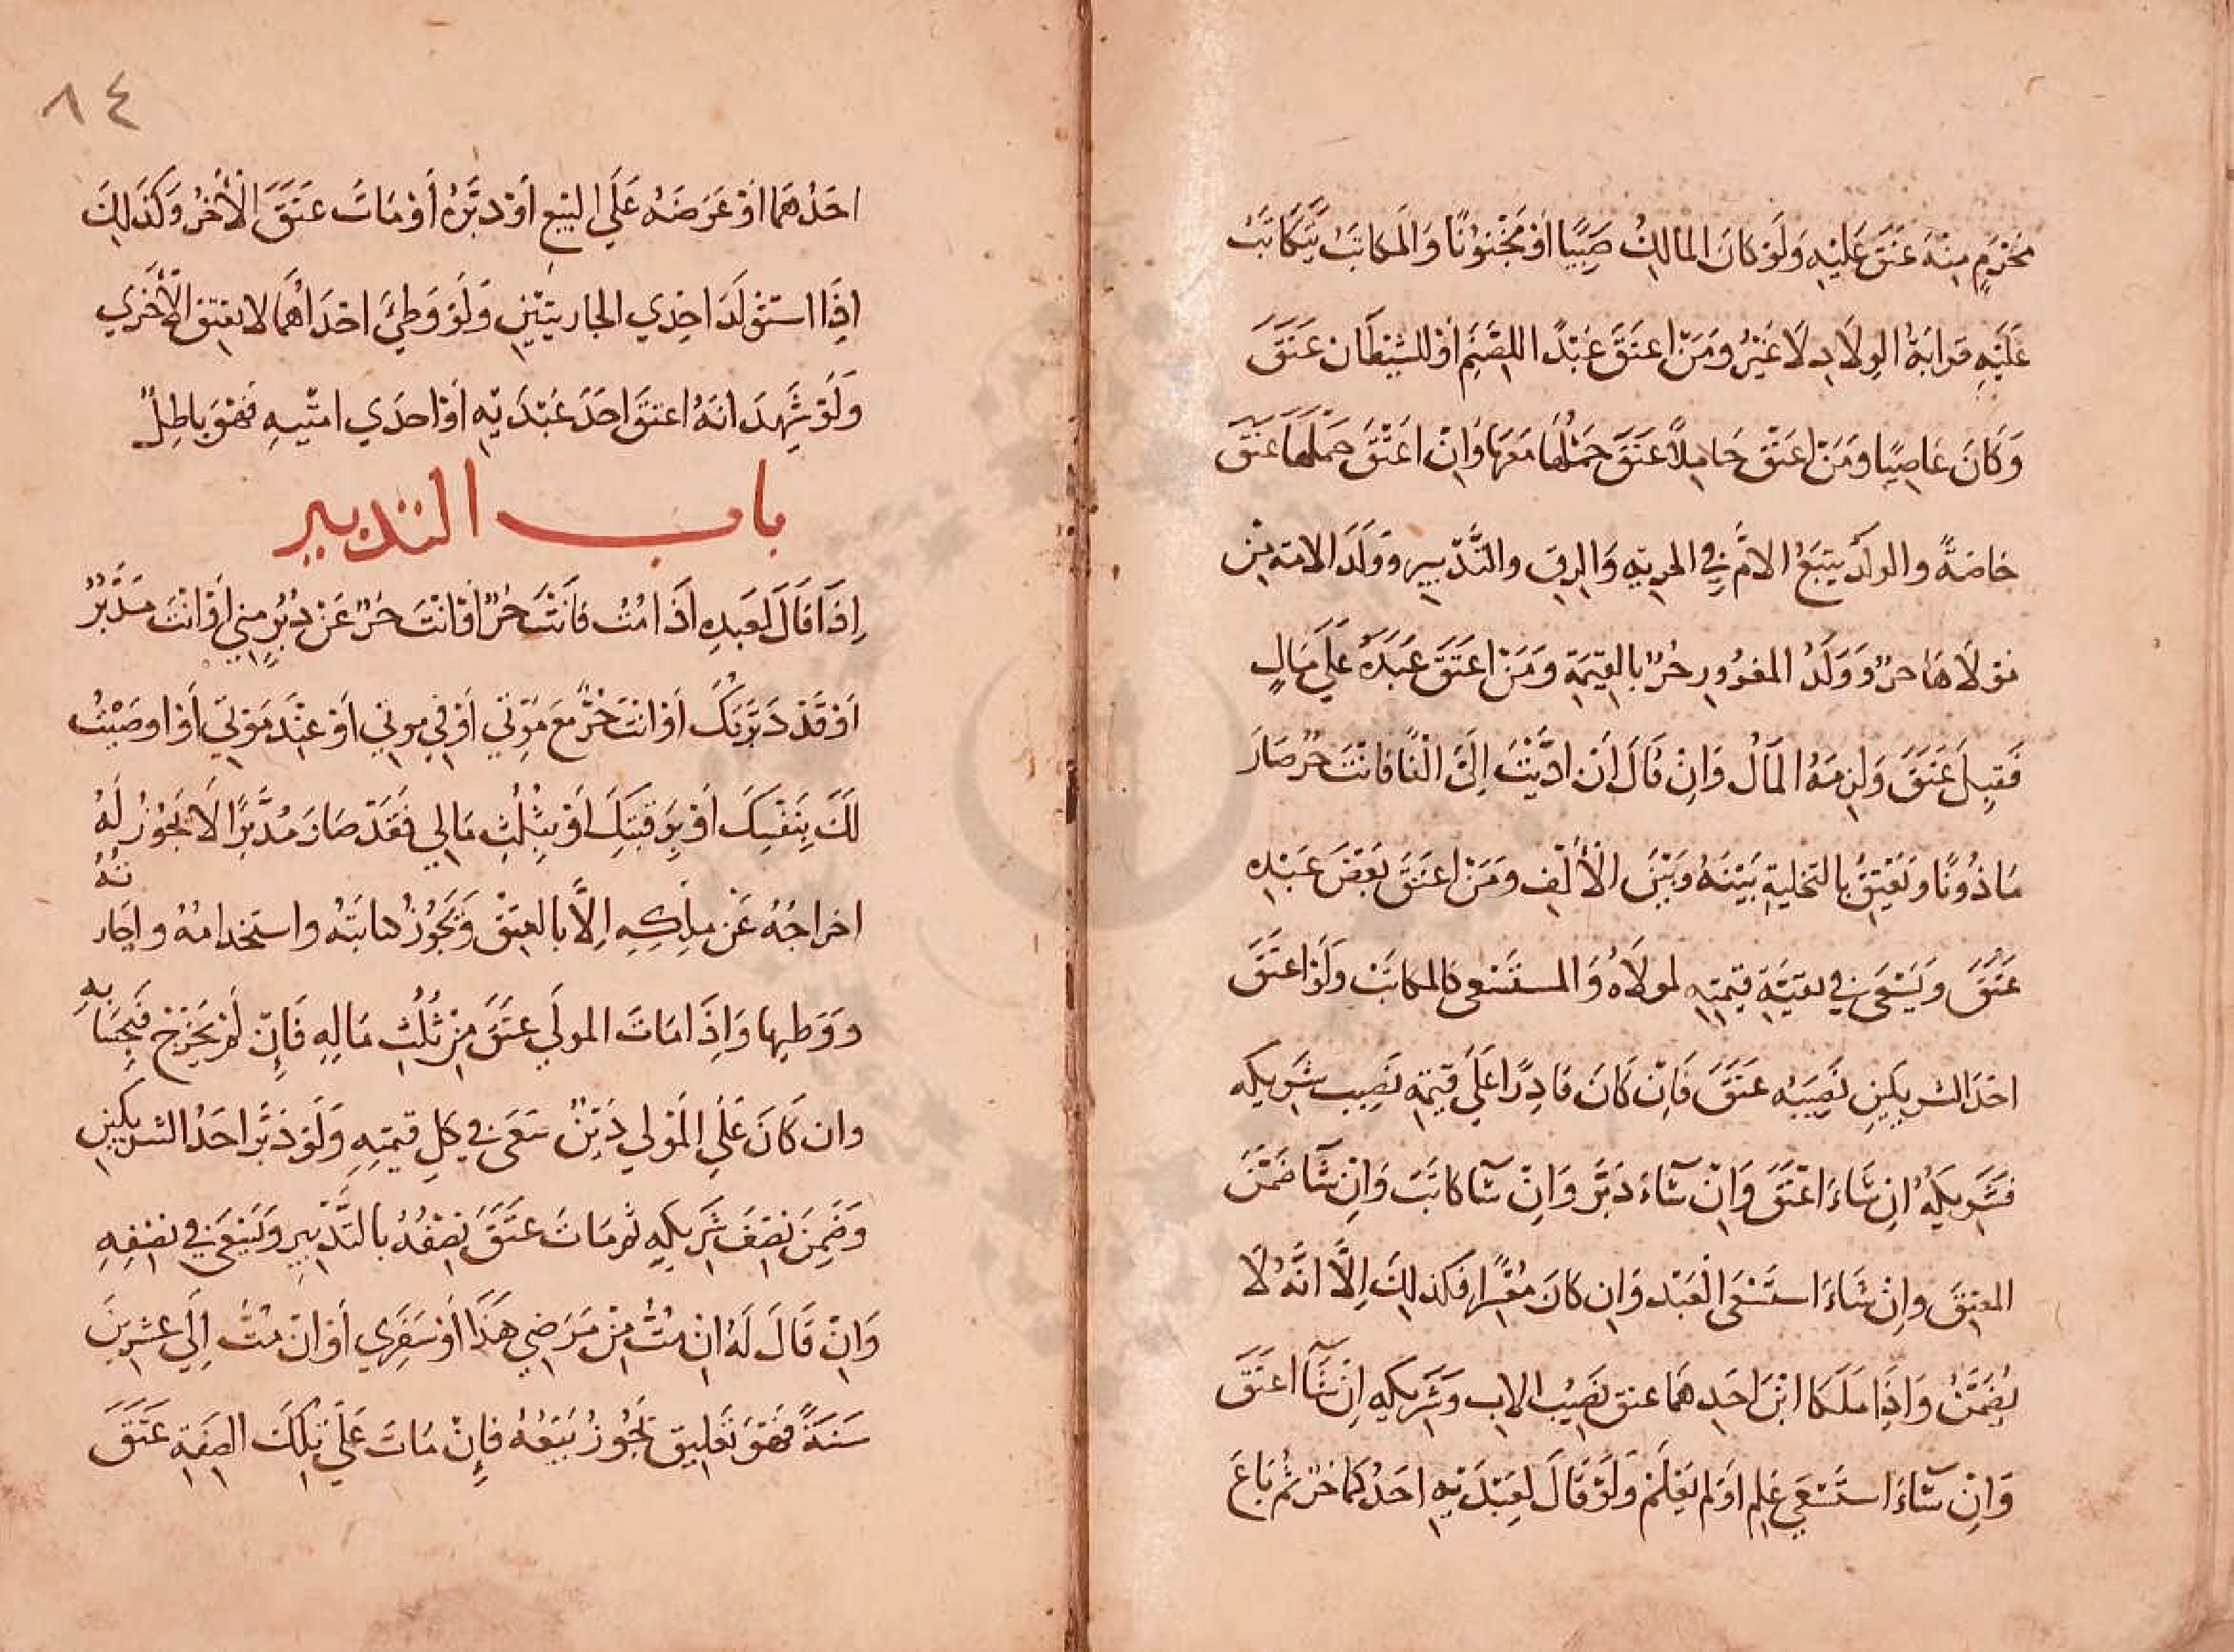 مَحْرَمٍ مِنْهُ عَتَقَ عَلَيْهِ وَلَوْ كَانَ المَالِكُ صَبِيًّا اَوْ مَجْنُونًا وَالمكَاتَبُ يَتَكَاتَبُ
عَلَيْهِ قرابَةُ الوِلَادِ لَا غَيْرُ وَمَنْ اعتَقَ عَبْدًا للصَّنَمِ أوْ للشيْطَانِ عَتَقَ
وَكَانَ عَاصِيًا ومَنْ اعتَقَ حَامِلًا عَتَقَ حَمْلُهَا مَعَهَا وَاِنْ اعَتَقَ حَمْلَهَا عَتَقَ
خَاصَةً والولَدُ يتبَعُ الامَّ فِي الحريّهِ وَالرِقِ والتَّدْبِيرِ وَوَلَدَ الامَةِ مِنْ
مَوْلَاهَا حرٌ وَوَلَدُ المغرُورِ حُرٌّ بالقِيْمَةِ وَمَنْ اعتَقَ عَبَدَهُ عَلَي مَالٍ
فَقبِلَ عَتَقَ وَلزِمَهُ المَالُ وَاِنْ قَالَ اِنْ ادَّيْتَ اِلَيَّ الْفًا فَانْتَ حُرٌّ صَارَ
مَاذُونًا وَيَعْتِقُ بالتخليةِ بَيْنَهُ وَبَيْنَ الْأَلْفِ وَمَنْ اعتَقَ بَعْضَ عَبْدِهِ
عَتَقَ وَيَسْعَى فِي بقيَةِ قيمتِهِ لمولَاهُ وَالمستَسْعى كالمكاتَبْ وَلَوْ اعتَقَ
احْدَ الشريكَينِ نَصِيبَهُ عَتَقَ فَاِنْ كَانَ قَادِرًا عَلَي قِيمَةِ نَصِيب شَرِيكِه
فَشَريكُهُ اِن شَاءَ اعْتَقَ وَاِنْ شَآءَ دَبَّرَ وَاِنْ شَآ كَاتَبَ وَاِنْ شَآ ضَمَّنَ
المعتِقَ وَاِنْ شَاءَ استَسْعَى العَبْد وَاِن كانَ مُعْسِرًا فكَذلِكَ اِلَّا انَّهُ لَا
يُضَمَّنُ وَاِذَا مَلَكَا ابْنَ احَدِهِمَا عتق نَصِيبُ الاب وَشَرِيكُهِ اِنْ شَآ اعتَقَ
وَاِنْ شَآءَ استَسْعَي عَلِم اَوْ لم يَعْلَمْ وَلَوْ قَالَ لِعَبْدَيْهِ احَدُكمَا حُرٌّ ثُم بَاعَ
٨٤
احَدَهُمَا اوْ عَرَضَهُ عَلَي البَيْعِ أوْ دبَّرَهُ أوْ مَاتَ عَتَقَ الْأخَرُ وَكَذَلِكَ
اِذَا استَوْلَدَ احِدِي الجَاريَتَيْنِ وَلَوْ وَطِيَ احْدَاهُمَا لا تعتِق الأخرَي
وَلَوْ شَهِدَ انَهُ اعتقَ احَدَ عَبْدَيْهِ أوْ احدَي امتَيهِ فَهْوَ بَاطِلٌ
باب التدبير
اِذَا قَالَ لعَبدِهِ اَذَا مُتُ فانَتْ حُرٌّ اوْ انْتَ حُرٌّ عَنْ دُبُرٍ مِنِي اَوْ انْتَ مُدَبَّرٌ
اَوْ قَدْ دَبَّرْتكَ اَوْ انتَ حُرٌّ مَعَ مَوْتي أوْ فِي موتي اَوْ عِنْدَ مَوْتِي أَوْ اوصَيْتُ
لَكَ بِنَفْسِكَ اَوْ بِرَقبَتِكَ اَوْ بِثُلُثِ مَالِي فَقَدْ صَارَ مُدَبَّرًا لَا يَجُوْزُ لَهُ
اخراجُهُ عَنْ مِلكِهِ اِلَّا بالعِتْقِ وَيَجُوزُ كتابَتُه واستخدامُهُ وايجارتُهُ
ووَطيها وَاِذَا مَاتَ المولَي عتَقَ مِنْ ثُلُثِ مَالِهِ فَاِنْ لَمْ يَخْرُجْ فَبِحِسَابِهِ
وان كَانَ عَلَي المَوْلي دَيْنٌ سَعَى فِي كلِ قيمَتِهِ وَلَوْ دَبَّرَ احَدُ الشريكَيْنِ
وَضَمِنَ نصْفَ شَريكِهِ ثُم مَاتَ عتَقَ نِصْفُهُ بالتَّدْبِيرِ وَيَسْعَى فِي نِصْفِهِ
وَاِنْ قَالَ لَهُ اِن مُتُّ مِنْ مَرَضِي هَذَا أوْ سَفَرِي أوْ اِنْ مُتُّ اِلَي عشرينَ
سَنَةً فَهْوَ تَعليق يَجُوزُ بَيْعُهُ فإِنْ مَاتَ عَلَي تِلكَ الصِفَةِ عَتَقَ